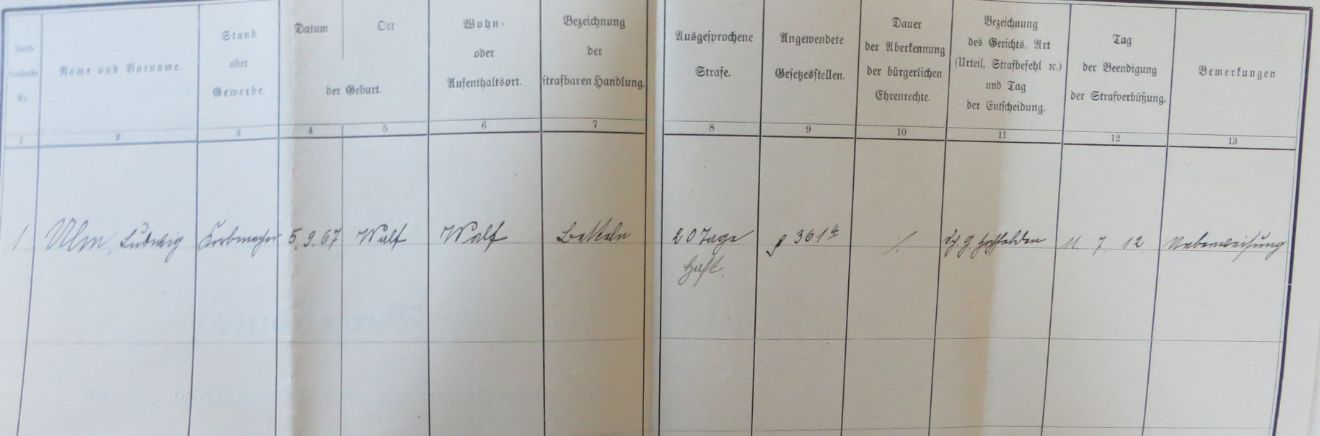 Name und Vorname.
Stand
oder
Gewerbe.
Datum
Ort
der Geburt.
Wohn-
oder
Aufenthaltsort.
Bezeichnung
der
strafbaren Handlung.
Ausgesprochene
Strafe.
Angewendete
Gesetzesstellen.
Dauer
der Aberkennung
der bürgerlichen
Ehrenrechte.
Bezeichnung
des Gerichts, Art
(Urteil, Strafbefehl ꝛc.)
und Tag
der Entscheidung.
Tag
der Beendigung
der Strafverbüßung.
Bemerkungen
1 2 3 4 5 6 7 8 9 10 11 12 13
1 Ulm Ludwig Korbmacher 5.9.67 Walf Walf Betteln 20 Tage § 361 4 ⁒ Hochfelden 11 7 12 Ueberweisung
Haft.